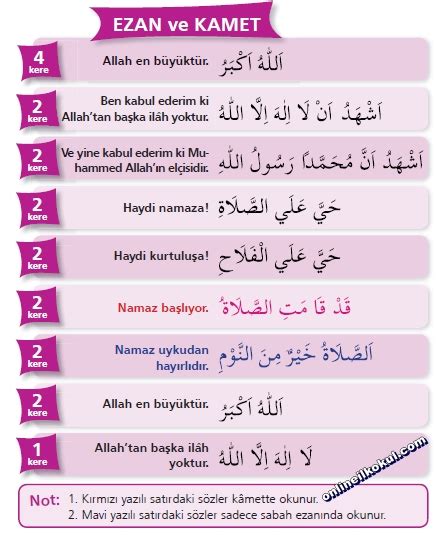 EZAN ve KAMET
4 kere
Allah en büyüktür. اَللّٰهُ اَكْبَرُ
2 kere
Ben kabul ederim ki
Allah’tan başka ilâh yoktur. اَشْهَدُ اَنْ لَا اِلٰهَ اِلَّا اللّٰهُ
2 kere
Ve yine kabul ederim ki Mu-
hammed Allah’ın elçisidir. اَشْهَدُ اَنَّ مُحَمَّدًا رَسُولُ اللّٰهِ
2 kere
Haydi namaza! حَيَّ عَلَي الصَّلَاةِ
2 kere
Haydi kurtuluşa! حَيَّ عَلَي الْفَلَاحِ
2 kere
Namaz başlıyor. قَدْ قَا مَتِ الصَّلَاةُ
2 kere
Namaz uykudan
hayırlıdır. اَلصَّلَاةُ خَيْرٌ مِنَ النَّوْمِ
2 kere
Allah en büyüktür. اَللّٰهُ اَكْبَرُ
1 kere
Allah’tan başka ilâh
yoktur. لَا اِلٰهَ اِلَّا اللّٰهُ
Not: 1. Kırmızı yazılı satırdaki sözler kâmette okunur.
2. Mavi yazılı satırdaki sözler sadece sabah ezanında okunur.
onlineilkokul.com